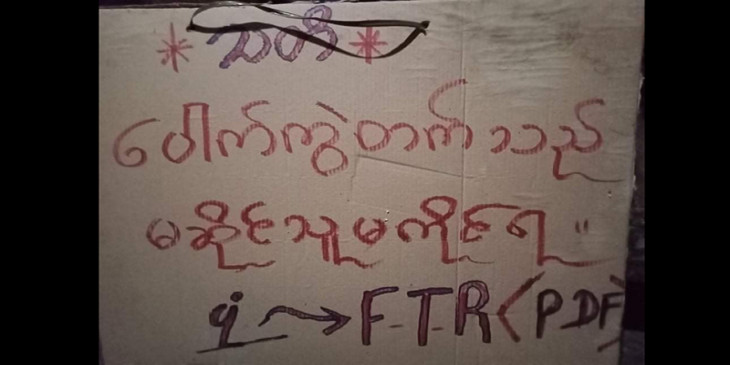 * သတိ *
ပေါက်ကွဲတတ်သည်
မဆိုင်သူမကိုင်ရ။
ပုံ → F.T.R (PDF)